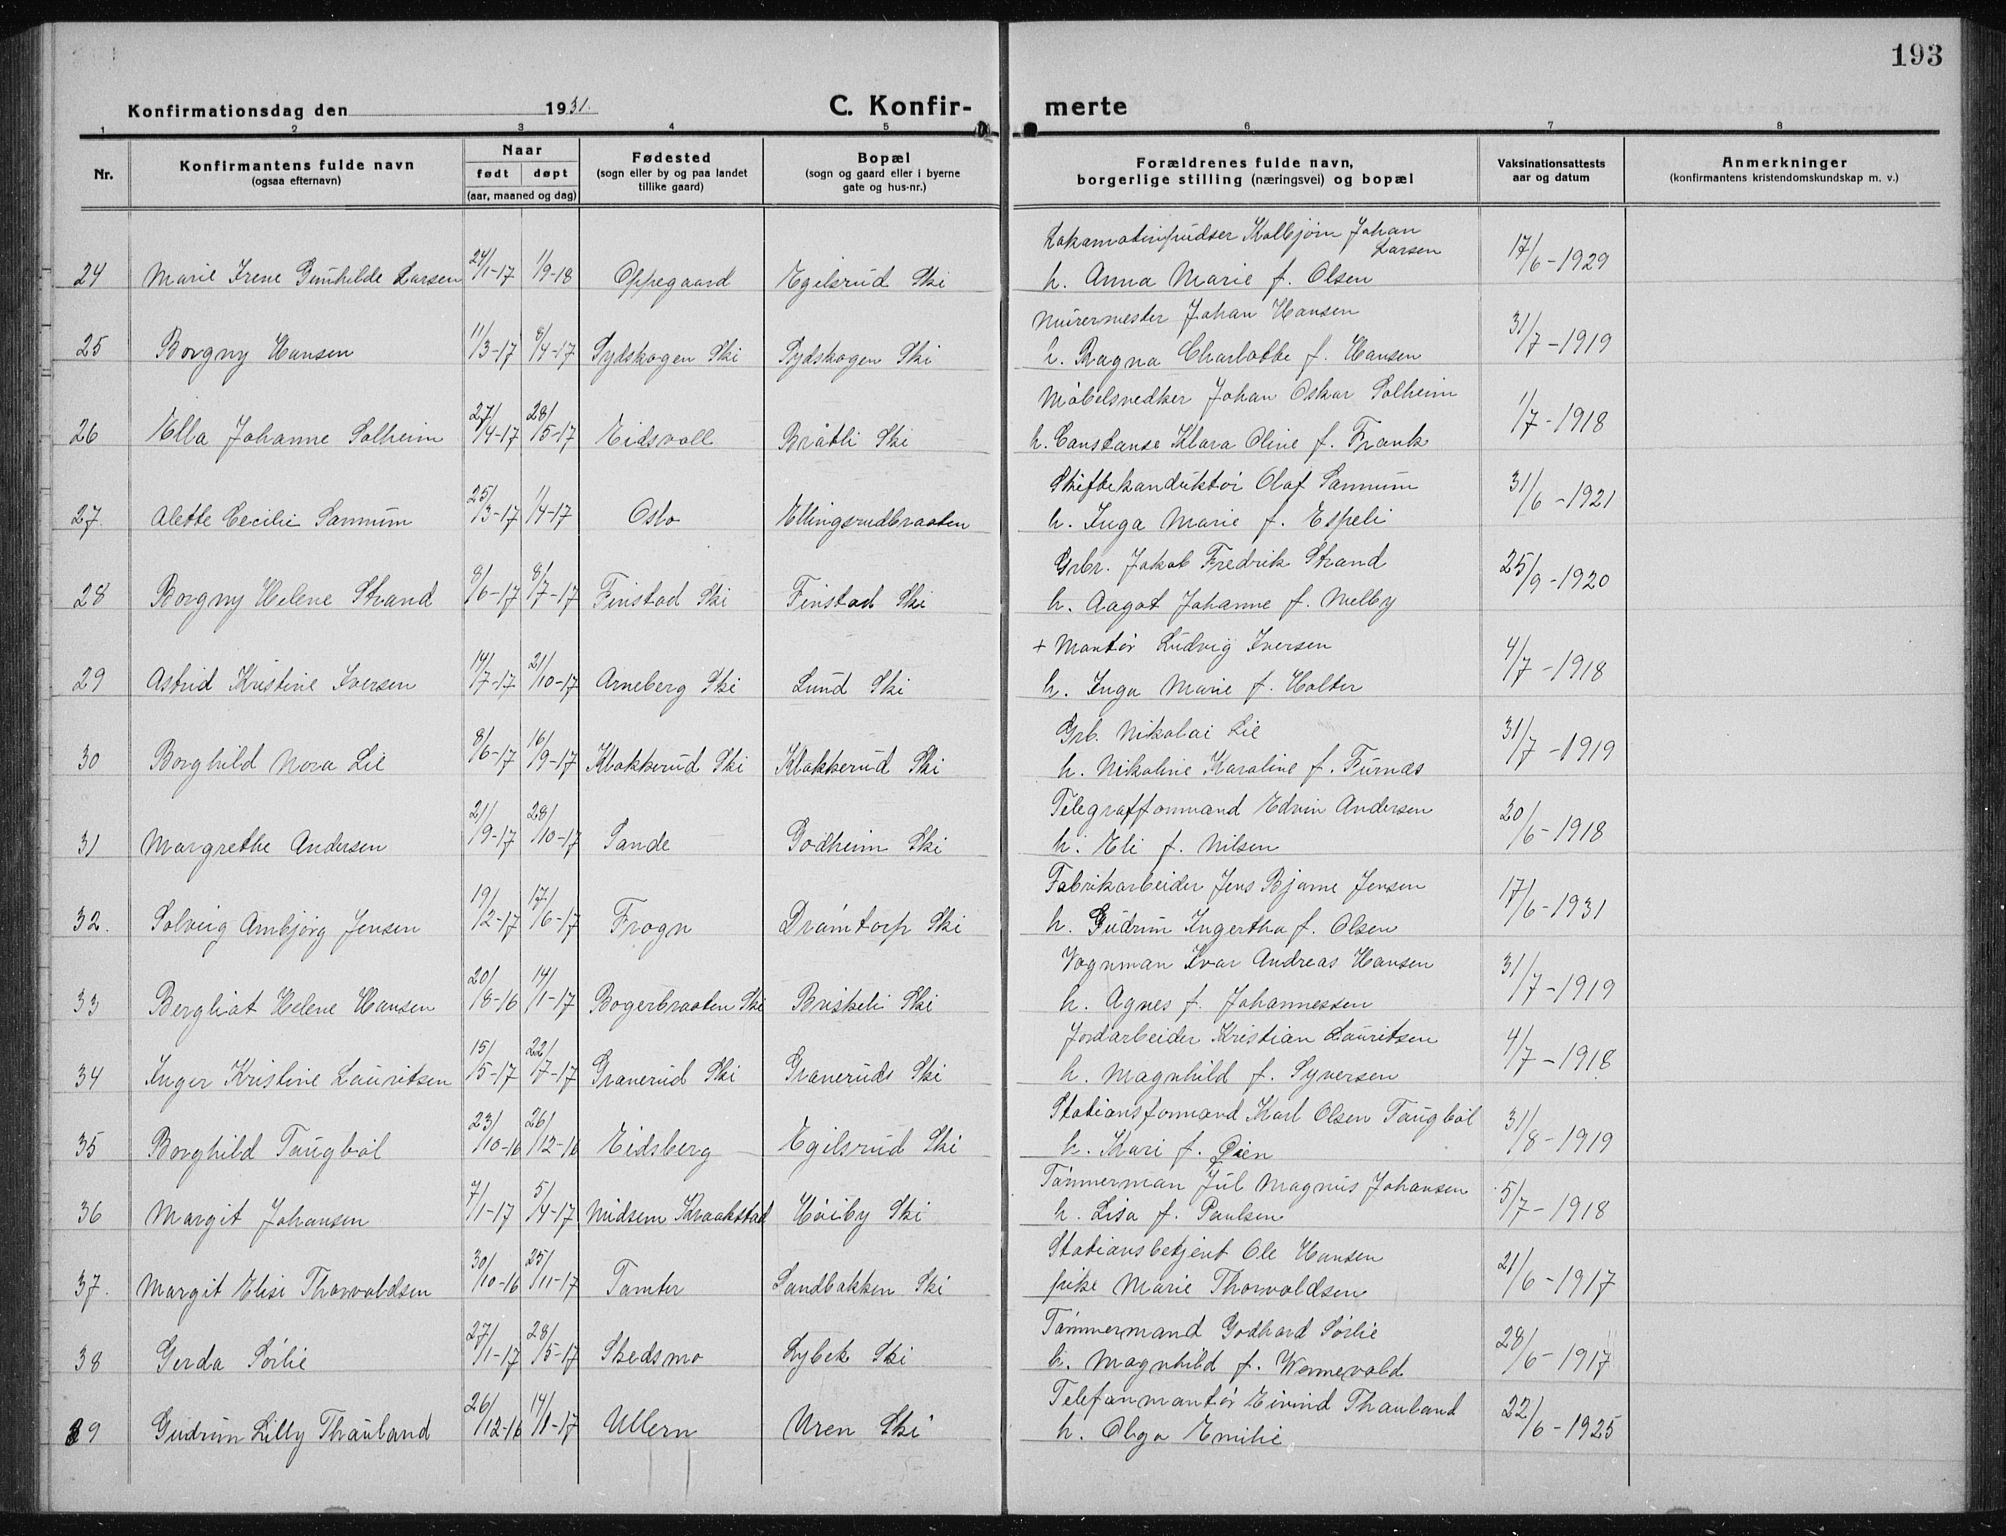 193
Konfirmationsdag den 1931.
C. Konfir-
merte
1 2 3 4 5 6 7 8
Nr.
Konfirmantens fulde navn
(ogsaa efternavn)
Naar
født døpt
(aar, maaned og dag)
Fødested
(sogn eller by og paa landet
tillike gaard)
Bopæl
(sogn og gaard eller i byerne
gate og hus-nr.)
Forældrenes fulde navn,
borgerlige stilling (næringsvei) og bopæl
Vaksinationsattests
aar og datum
Anmerkninger
(konfirmantens kristendomskundskap m. v.)
Lokomotivpudser Kolbjørn Johan
Larsen
24 Marie Irene Gunhilde Larsen 24/1-17 1/9-18 Oppegaard Egilsrud Ski h. Anna Marie f. Olsen 17/6-1929
Murermester Johan Hansen
25 Borgny Hansen 11/3-17 8/4-17 Sydskogen Ski Sydskogen Ski h. Ragna Charlotte f. Hansen 31/7-1919
Møbelsnedker Johan Oskar Solheim
26 Ella Johanne Solheim 27/4-17 28/5-17 Eidsvoll Bråtli Ski h. Constanse Klara Oline f. Frank 1/7-1918
Skiftekonduktør Olaf Sannum
27. Alette Cecilie Sannum 25/3-17 1/4-17 Oslo Ellingsrudbraaten h. Inga Marie f. Espeli 31/6-1921
Grbr. Jakob Fredrik Strand
28 Borgny Helene Strand 8/6-17 8/7-17 Finstad Ski Finstad Ski h. Aagot Johanne f. Melby 25/9-1920
+ Montør Ludvig Iversen
29 Astrid Kristine Iversen 14/7-17 21/10-17 Arneberg Ski Lund Ski h. Inga Marie f. Holter 4/7-1918
Grb. Nikolai Lie
30 Borghild Nora Lie 8/6-17 16/9-17 Klokkerud Ski Klokkerud Ski h. Nikoline Karoline f. Furnæs 31/7-1919
Telegrafformand Edvin Andersen
31 Margrethe Andersen 21/9-17 28/10-17 Sande Godheim Ski h. Eli f. Nilsen 20/6-1918
Fabrikarbeider Jens Bjarne Jensen
32. Solveig Ambjørg Jensen 19/2-17 17/6-17 Frogn Drømtorp Ski h. Gudrun Ingertha f. Olsen 17/6-1931
Vognman Ivar Andreas Hansen
33 Bergliot Helene Hansen 20/8-16 14/1-17 Bogerbraaten Ski Briskeli Ski h. Agnes f. Johannessen 31/7-1919
Jordarbeider Kristian Lauritsen
34 Inger Kristine Lauritsen 15/5-17 22/7-17 Granerud Ski Graneruds Ski h. Magnhild f. Syversen 4/7-1918
Stationsformand Karl Olsen Taugbøl
35 Borghild Taugbøl 23/10-16 26/12-16 Eidsberg Egilsrud Ski h. Kari f. Øien 31/8-1919
Tømmerman Jul Magnus Johansen
36 Margit Johansen 7/1-17 5/4-17 Midsem Kraakstad Høiby Ski h. Lisa f. Paulsen 5/7-1918
Stationsbetjent Ole Hansen
37. Margit Elise Thorvaldsen 30/10-16 25/11-17 Tomter Sandbakken Ski pike Marie Thorvaldsen 21/6-1917
Tømmermand Godhard Sørlie
38 Gerda Sørlie 27/1-17 28/5-17 Skedsmo Lybek Ski h. Magnhild f. Wormevold 28/6-1917
Telefonmontør Eivind Thauland
39 Gudrun Lilly Thauland 26/12-16 14/1-17 Ullern Uren Ski h. Olga Emilie 22/6-1925